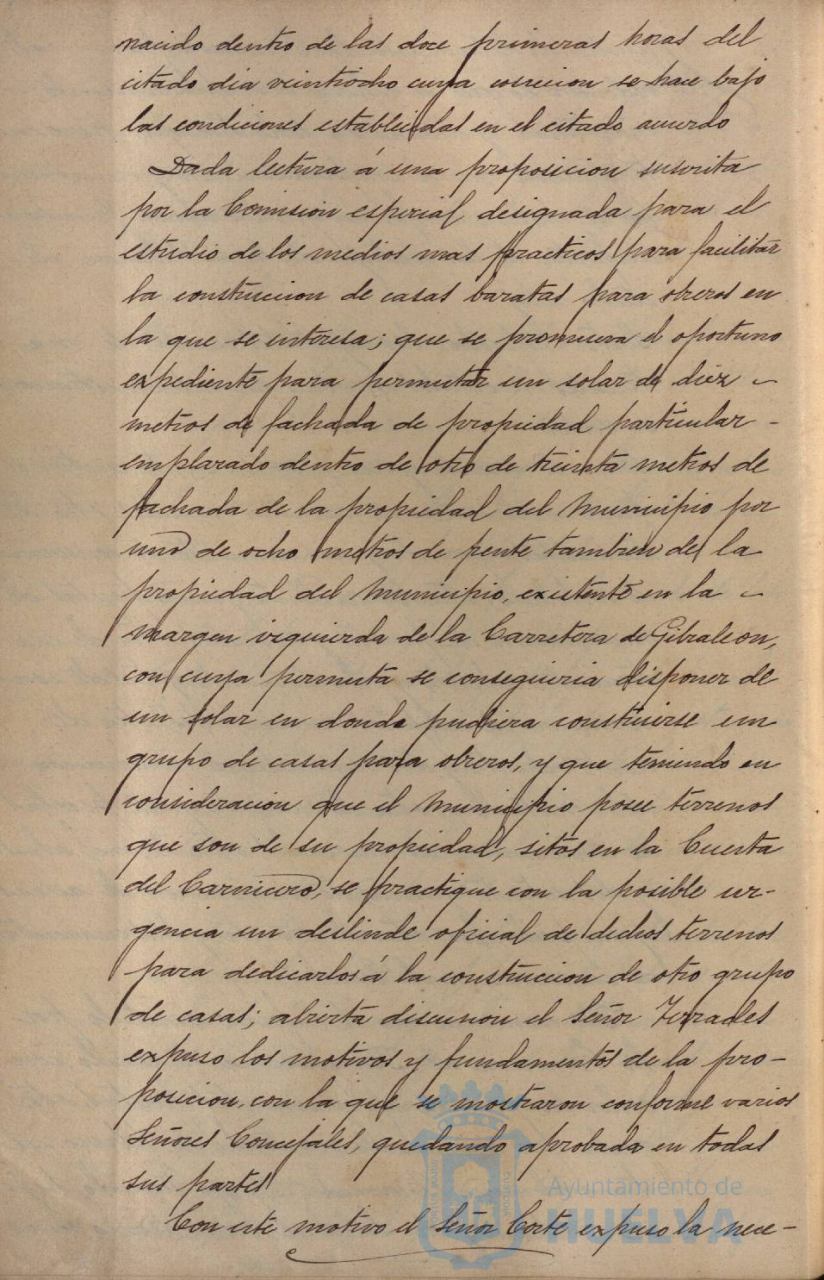 nacido dentro de las doce primeras horas del
citado dia veintiocho cuya coneccion se hace bajo
las condiciones establecidas en el citado acuerdo
Dada lectura á una proposicion suscrita
por la Comision especial designada para el
estudio de los medios mas practicos para facilitar
la construccion de casas baratas para obreros en
la que se interesa; que se promueva el oportuno
expediente para permutar un solar de diez
metros de fachada de propiedad particular
emplazado dentro de otro de treinta metros de
fachada de la propiedad del Municipio por
uno de ocho metros de frente tambien de la
propiedad del Municipio, existente en la
margen izquierda de la Carretera de Gibraleon,
con cuya permuta se conseguiria disponer de
un solar en donde pudiera construirse un
grupo de casas para obreros, y que teniendo en
consideracion que el Municipio posee terrenos
que son de su propiedad, sitos en la Cuesta
del Carnicero, se practique con la posible ur-
gencia un deslinde oficial de dichos terrenos
para dedicarlos á la construccion de otro grupo
de casas; abierta discusion el Señor Terrades
expuso los motivos y fundamentos de la pro-
posicion, con la que se mostraron conforme varios
Señores Concejales, quedando aprobada en todas
sus partes
Con este motivo el Señor Corte expuso la nece-
Ayuntamiento de
HUELVA